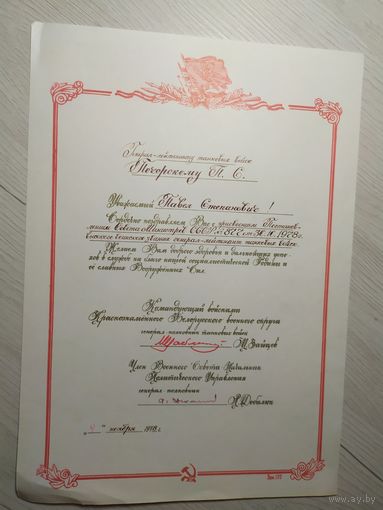 Генерал-лейтенанту танковых войск
Печорскому П. С.
Уважаемый Павел Степанович!
Сердечно поздравляем Вас с присвоением Постанов-
лением Совета Министров СССР 1978г.
высокого воинского звания генерал-лейтенант танковых войск.
Желаем Вам доброго здоровья и дальнейших успе-
хов в службе на благо нашей социалистической Родины и
ее славных Вооруженных Сил.
Командующий войсками
Краснознамённого Белорусского военного округа
генерал-полковник танковых войск
М. Зайцев
Член Военного Совета Начальник
Политического Управления
генерал-полковник
А. Дебалюк
ноября 1978 г.
www.ay.by